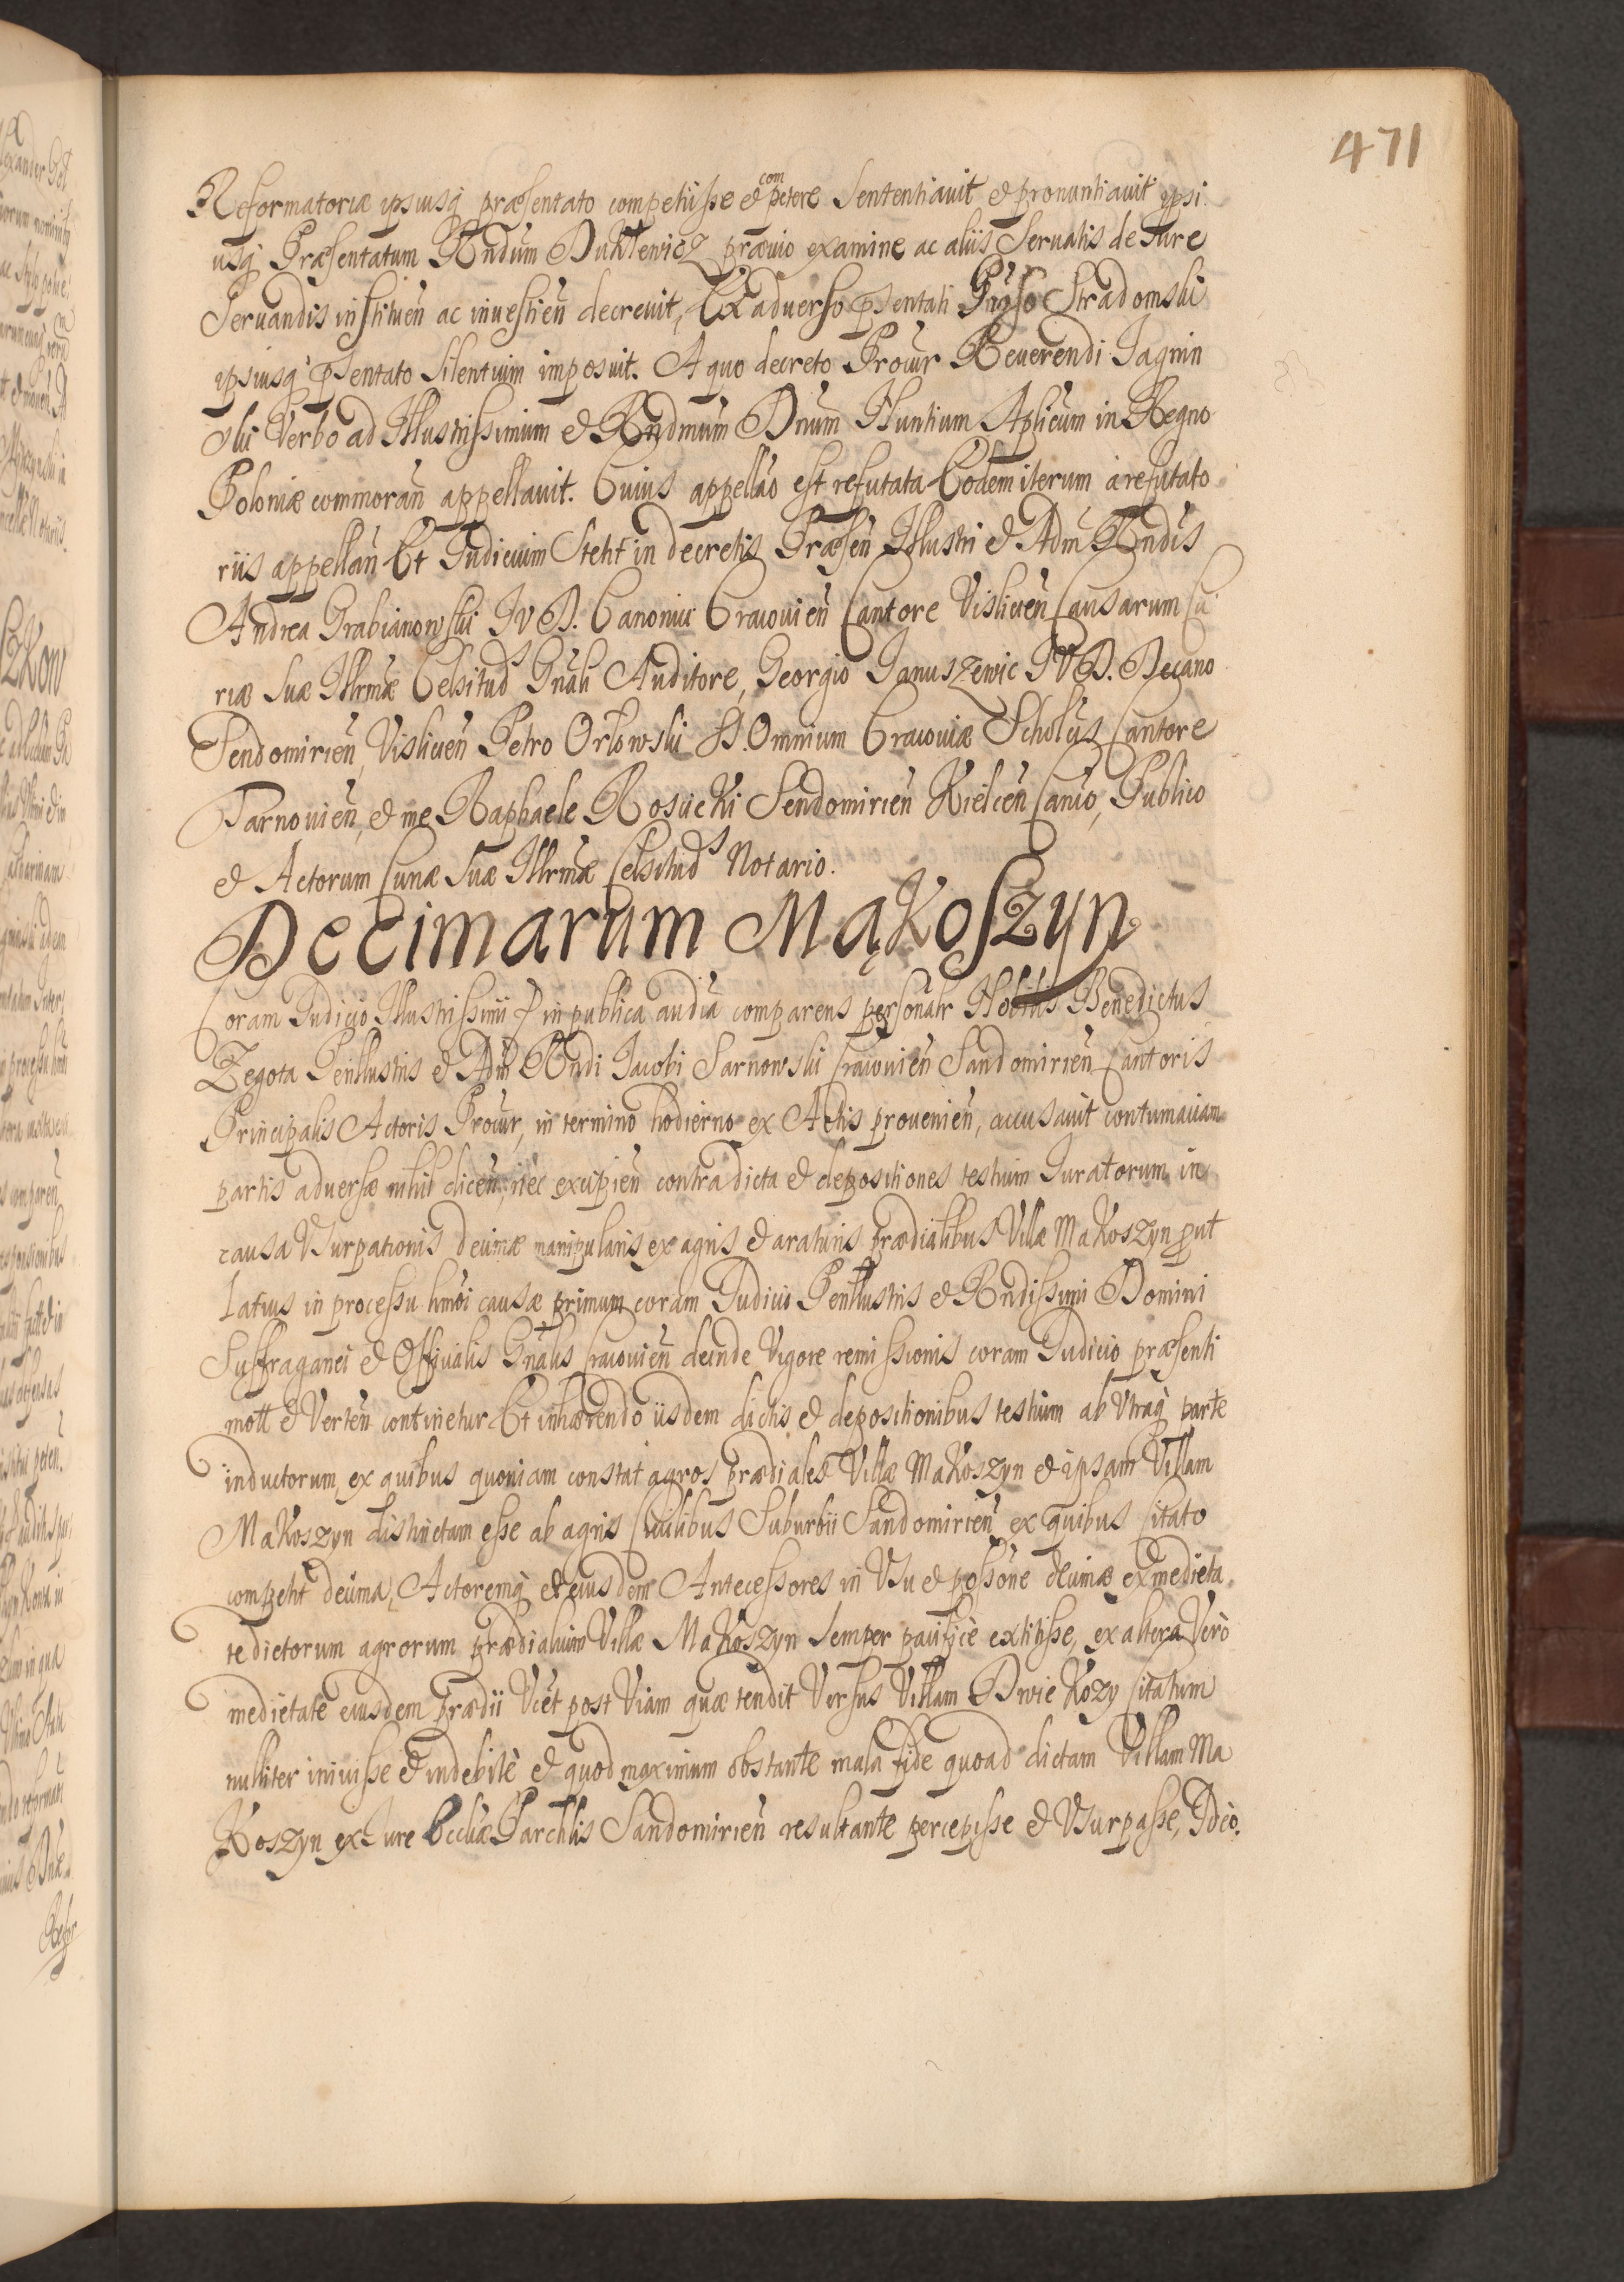 471
Reformatoriæ ipsiusq præsentato competiisse et competere Sententiavit et pronuntiavit ipsi
usq Præsentatum Rndum Duktewicz prævio examine ac aliis Servatis de Jure
Servandis instituen̄ ac investien̄ decrevit, Ex adverso p̄sentati Gnoso Stradomski
ipsiusq p̄sentato silentium imposuit. A quo decreto Procur Reverendi Jagnin
ski Verbo ad Illustrissimum et Rndmum Dnum Nuntium Aplicum in Regno
Poloniæ commoran̄ appellavit. Cuius appellāo est refutata Eodem iterum a refutato
riis appellan̄ Et Judicium Stetit in decretis Præsen̄ Illustri et Adm̄ Rndis
Andrea Grabianowski JVD. Canonic Cracovien̄ Cantore Vislicen̄ Causarum Cu
riæ Suæ Illrmæ Celsitud̄s Gnāli Auditore, Georgio Januszewic JVD. Decano
Sendomirien̄, Vislicen̄ Petro Orłowski SS. Omnium Cracoviæ Scholis Cantore
Tarnovien̄, et me Raphaele Rosicki Sendomirien̄ Kielcen̄ Canco, Publico
et Actorum Curiæ Suæ Illrmæ Celsitud̄s Notario.
Decimarum Mąkoszyn
Coram Judicio Illustrissimi P in publica audia comparens personalr Nobilis Benedictus
Zegota Perillustris et Adm̄ Rndi Jacobi Sarnowski Cracovien̄ Sandomirien̄ Cantoris
Principalis Actoris Procur, in termino hodierno ex Actis provenien̄, accusavit contumaciam
partis adversæ nihil dicen̄, nec excipien̄ contra dicta et depositiones testium Juratorum in
causa Vsurpationis decimæ manipularis ex agris et araturis prædialibus Villæ Makoszyn put
latius in processu hmōi causæ primum coram Judicio Perillustris et Rndissimi Domini
Suffraganei et Officialis Gnālis Cracovien̄ deinde Vigore remissionis coram Judicio præsenti
mott et Verten̄ continetur Et inhærendo iisdem dictis et depositionibus testium ab Vtraq parte
inductorum, ex quibus quoniam constat agros prædiales Villæ Makoszyn et ipsam Villam
Makoszyn distinctam esse ab agris Civilibus Suburbii Sandomirien̄ ex quibus Citato
competit decima, Actoremq et eiusdem Antecessores in Vsu et possōne decimæ ex medieta
te dictorum agrorum prædialium Villæ Makoszyn Semper pacifice extitisse, ex altera Verò
medietate eiusdem prædii Vcet post Viam quæ tendit Versus Villam Dwie Kozy Citatum
nulliter inivisse et indebitè et quod maximum obstante mala fide quoad dictam Villam Ma
Koszyn ex Jure Eccliæ Parchlis Sandomirien̄ resultante percepisse et Vsurpasse, Ideo.